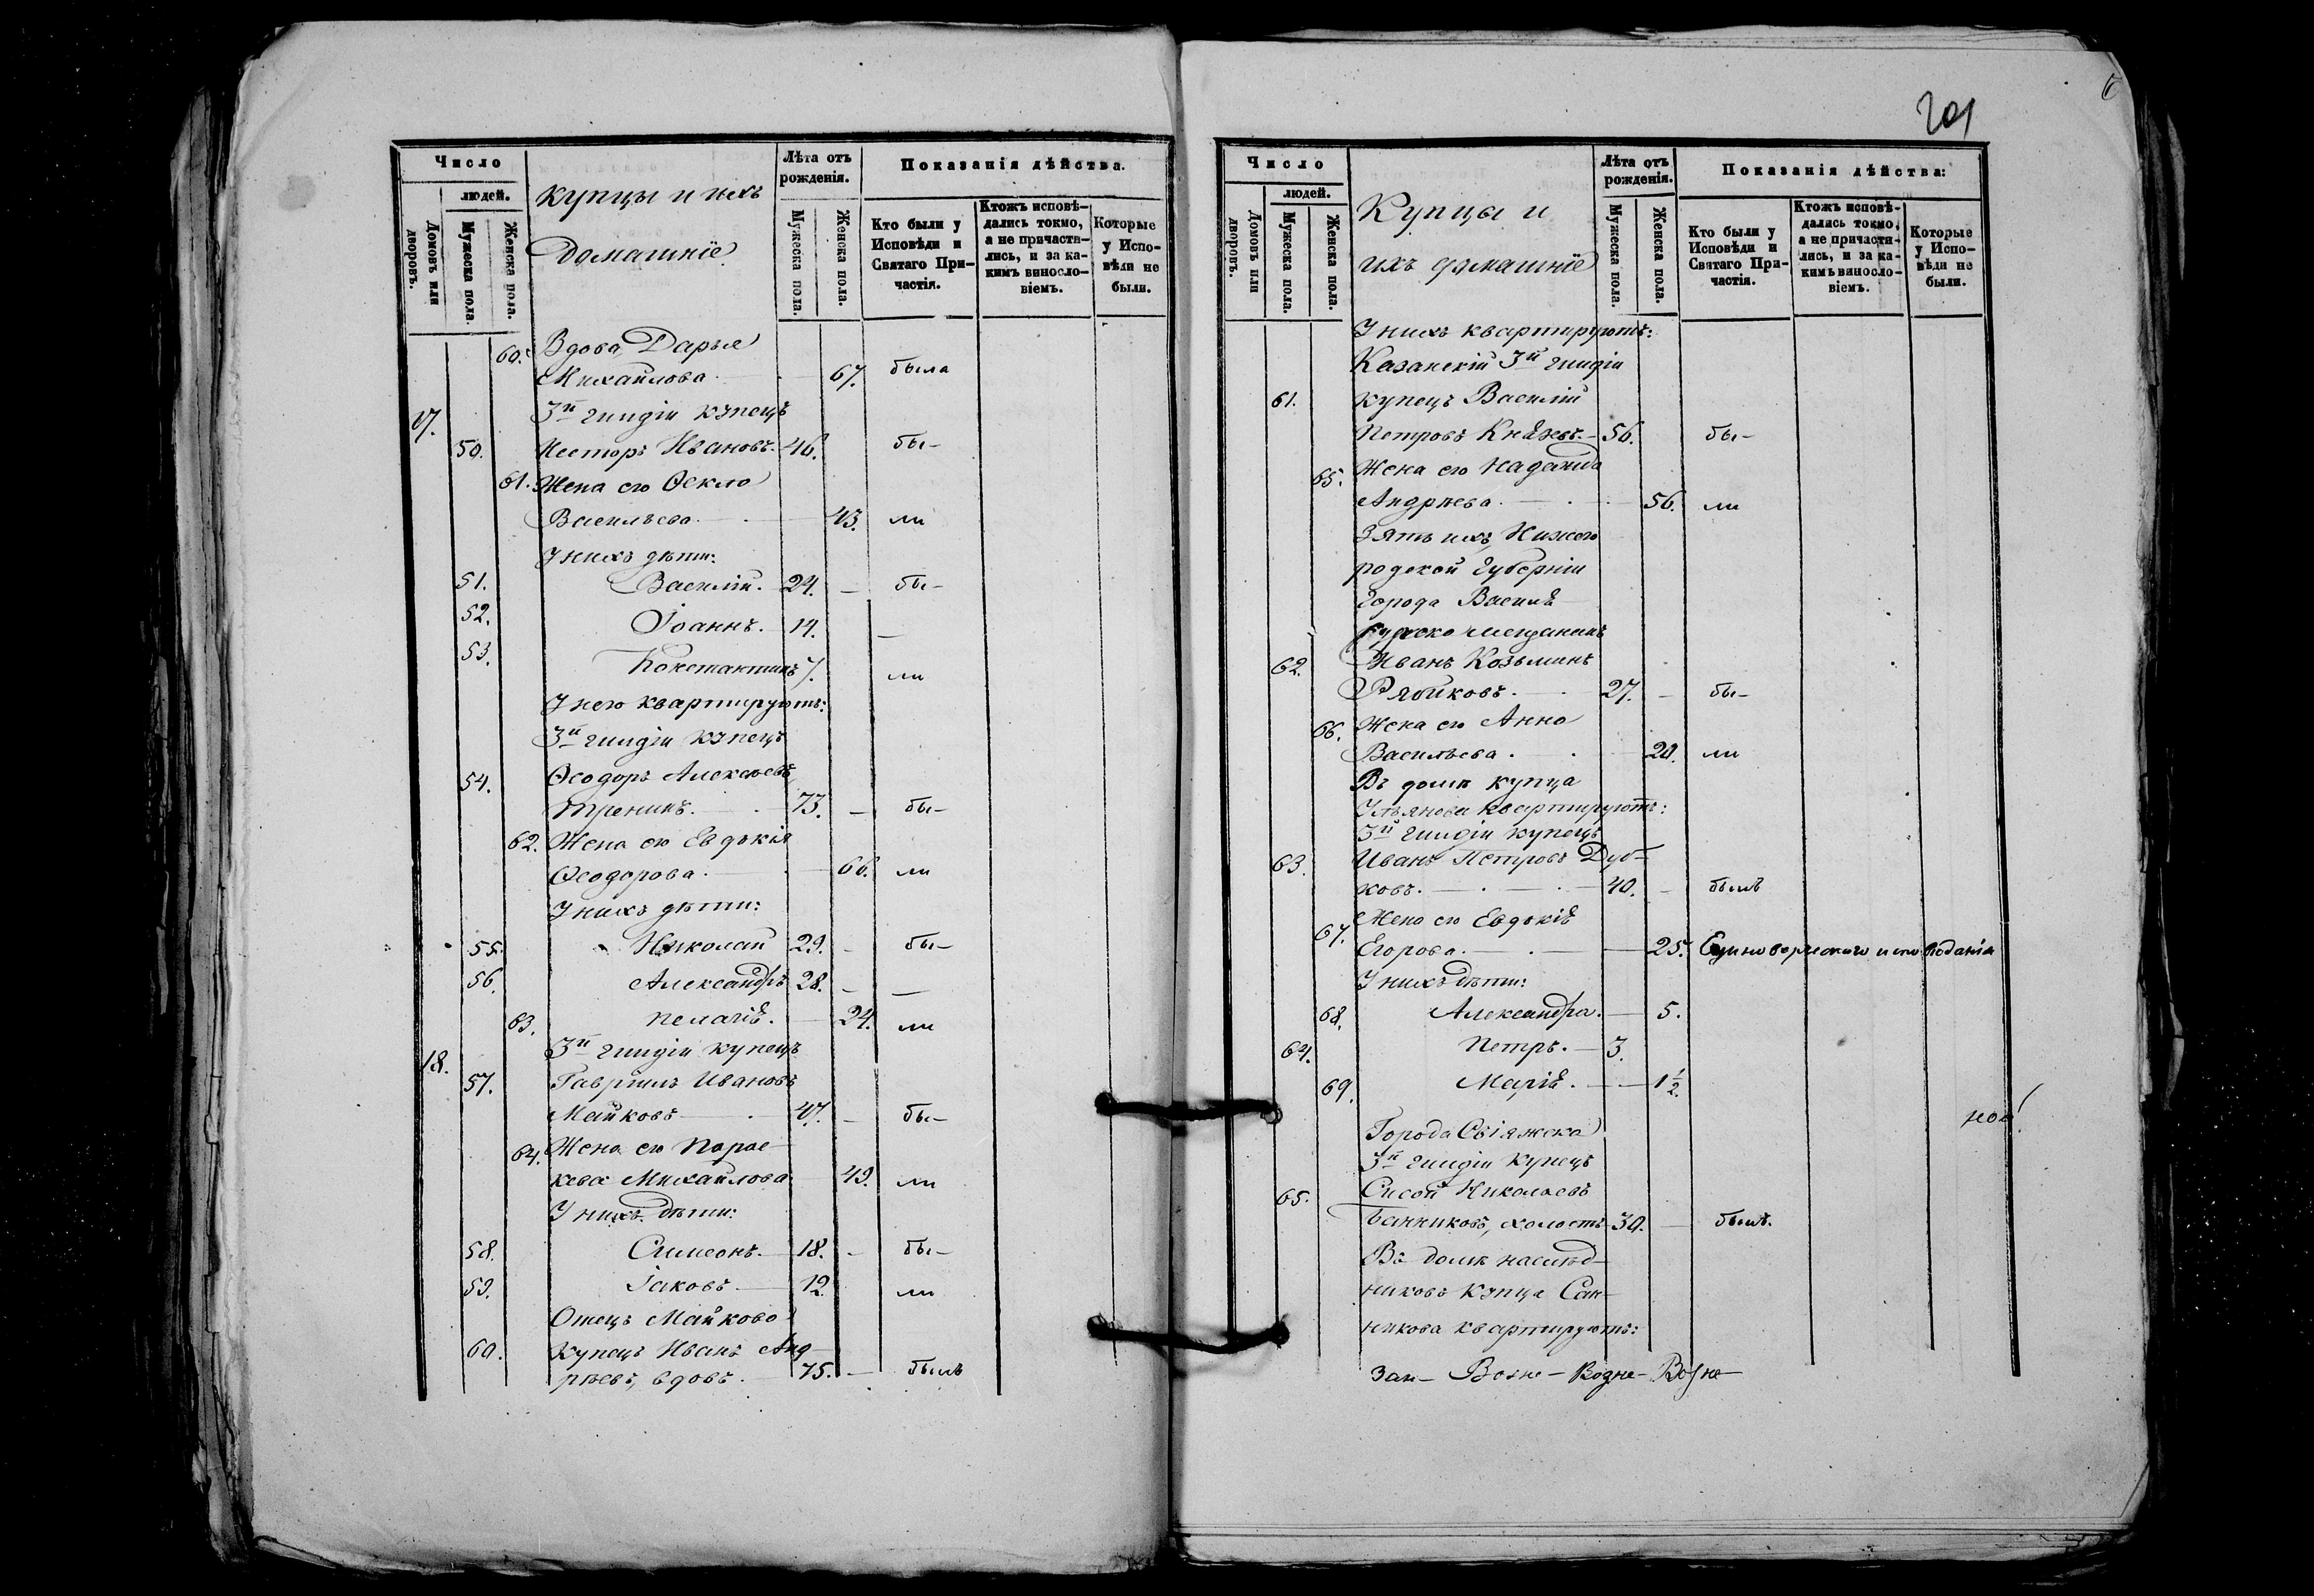 Число
людей.
Домовъ или дворовъ.
Мужеска пола.
Женска пола.
купцы и ихъ
домашніе
Лѣта отъ рожденія.
Мужеска пола.
Женска пола.
Показанія дѣйства.
Кто были у Исповѣди и Святаго Причастія.
Ктожъ исповѣдались токмо, а не причастились, и за какимъ винословіемъ.
Которые у Исповѣди не были.
60. Вдова Дарья
Михайлова. 67. была
17. 3й гильдіи купецъ
50. Несторъ Ивановъ. 46. бы-
61. Жена его Ѳекла
Васильева. 43. ли
У нихъ дѣти:
51. Василій. 24. — бы-
52. Іоаннъ. 14. —
53. Константинъ 7. ли
У него квартируютъ:
3й гильдіи купецъ
54. Ѳеодоръ Алексѣевъ
73. — бы-
62. Жена его Евдокія
Ѳеодорова. 66. ли
У нихъ дѣти:
55. Николай 29. — бы-
56. Александръ 28. — —
63. Пелагія. 24. ли
18. 3й гильдіи купецъ
57. Гавріилъ Ивановъ
Майковъ 47. — бы-
64. Жена его Парас-
кева Михайлова 49. ли
У нихъ дѣти:
58. Симеонъ. 18. — бы-
59. Іаковъ. 12 ли
Отецъ Майкова
60. Купецъ Иванъ Анд-
рѣевъ, вдовъ. 75. — былъ
201
6
Число
людей.
Домовъ или дворовъ.
Мужеска пола.
Женска пола.
Купцы и
ихъ домашніе
Лѣта отъ рожденія.
Мужеска пола.
Женска пола.
Показанія дѣйства:
Кто были у Исповѣди и Святаго Причастія.
Ктожъ исповѣдались токмо, а не причастились, и за какимъ винословіемъ.
Которые у Исповѣди не были.
У нихъ квартируютъ:
Казанскій 3й гильдіи
61. купецъ Василій
Петровъ 56. бы-
65. Жена его Надежда
Андрѣева. 56. ли
Зять ихъ, Нижего
родской Губерніи
Города Василь
мещанинъ
62. Иванъ Козьминъ
Рябиковъ. 27. — бы-
66. Жена его Анна
Васильева. 20. ли
Въ домѣ купца
Ульянова квартируютъ:
3й гильдіи купецъ
63. Иванъ Петровъ Дуб-
ковъ. 40. — былъ
67. Жена его Евдокія
Егорова. 25. Единоверческаго исповѣданія
У нихъ дѣти:
68. Александра. — 5.
64. Петръ. — 3.
69. Марія. — 1 1/2.
Города Свіяжска
3й гильдіи купецъ
65. Сисой Николаевъ
Банниковъ, холостъ 30. — былъ.
Въ домѣ наслѣд-
никовъ купца Сан-
никова квартируютъ: